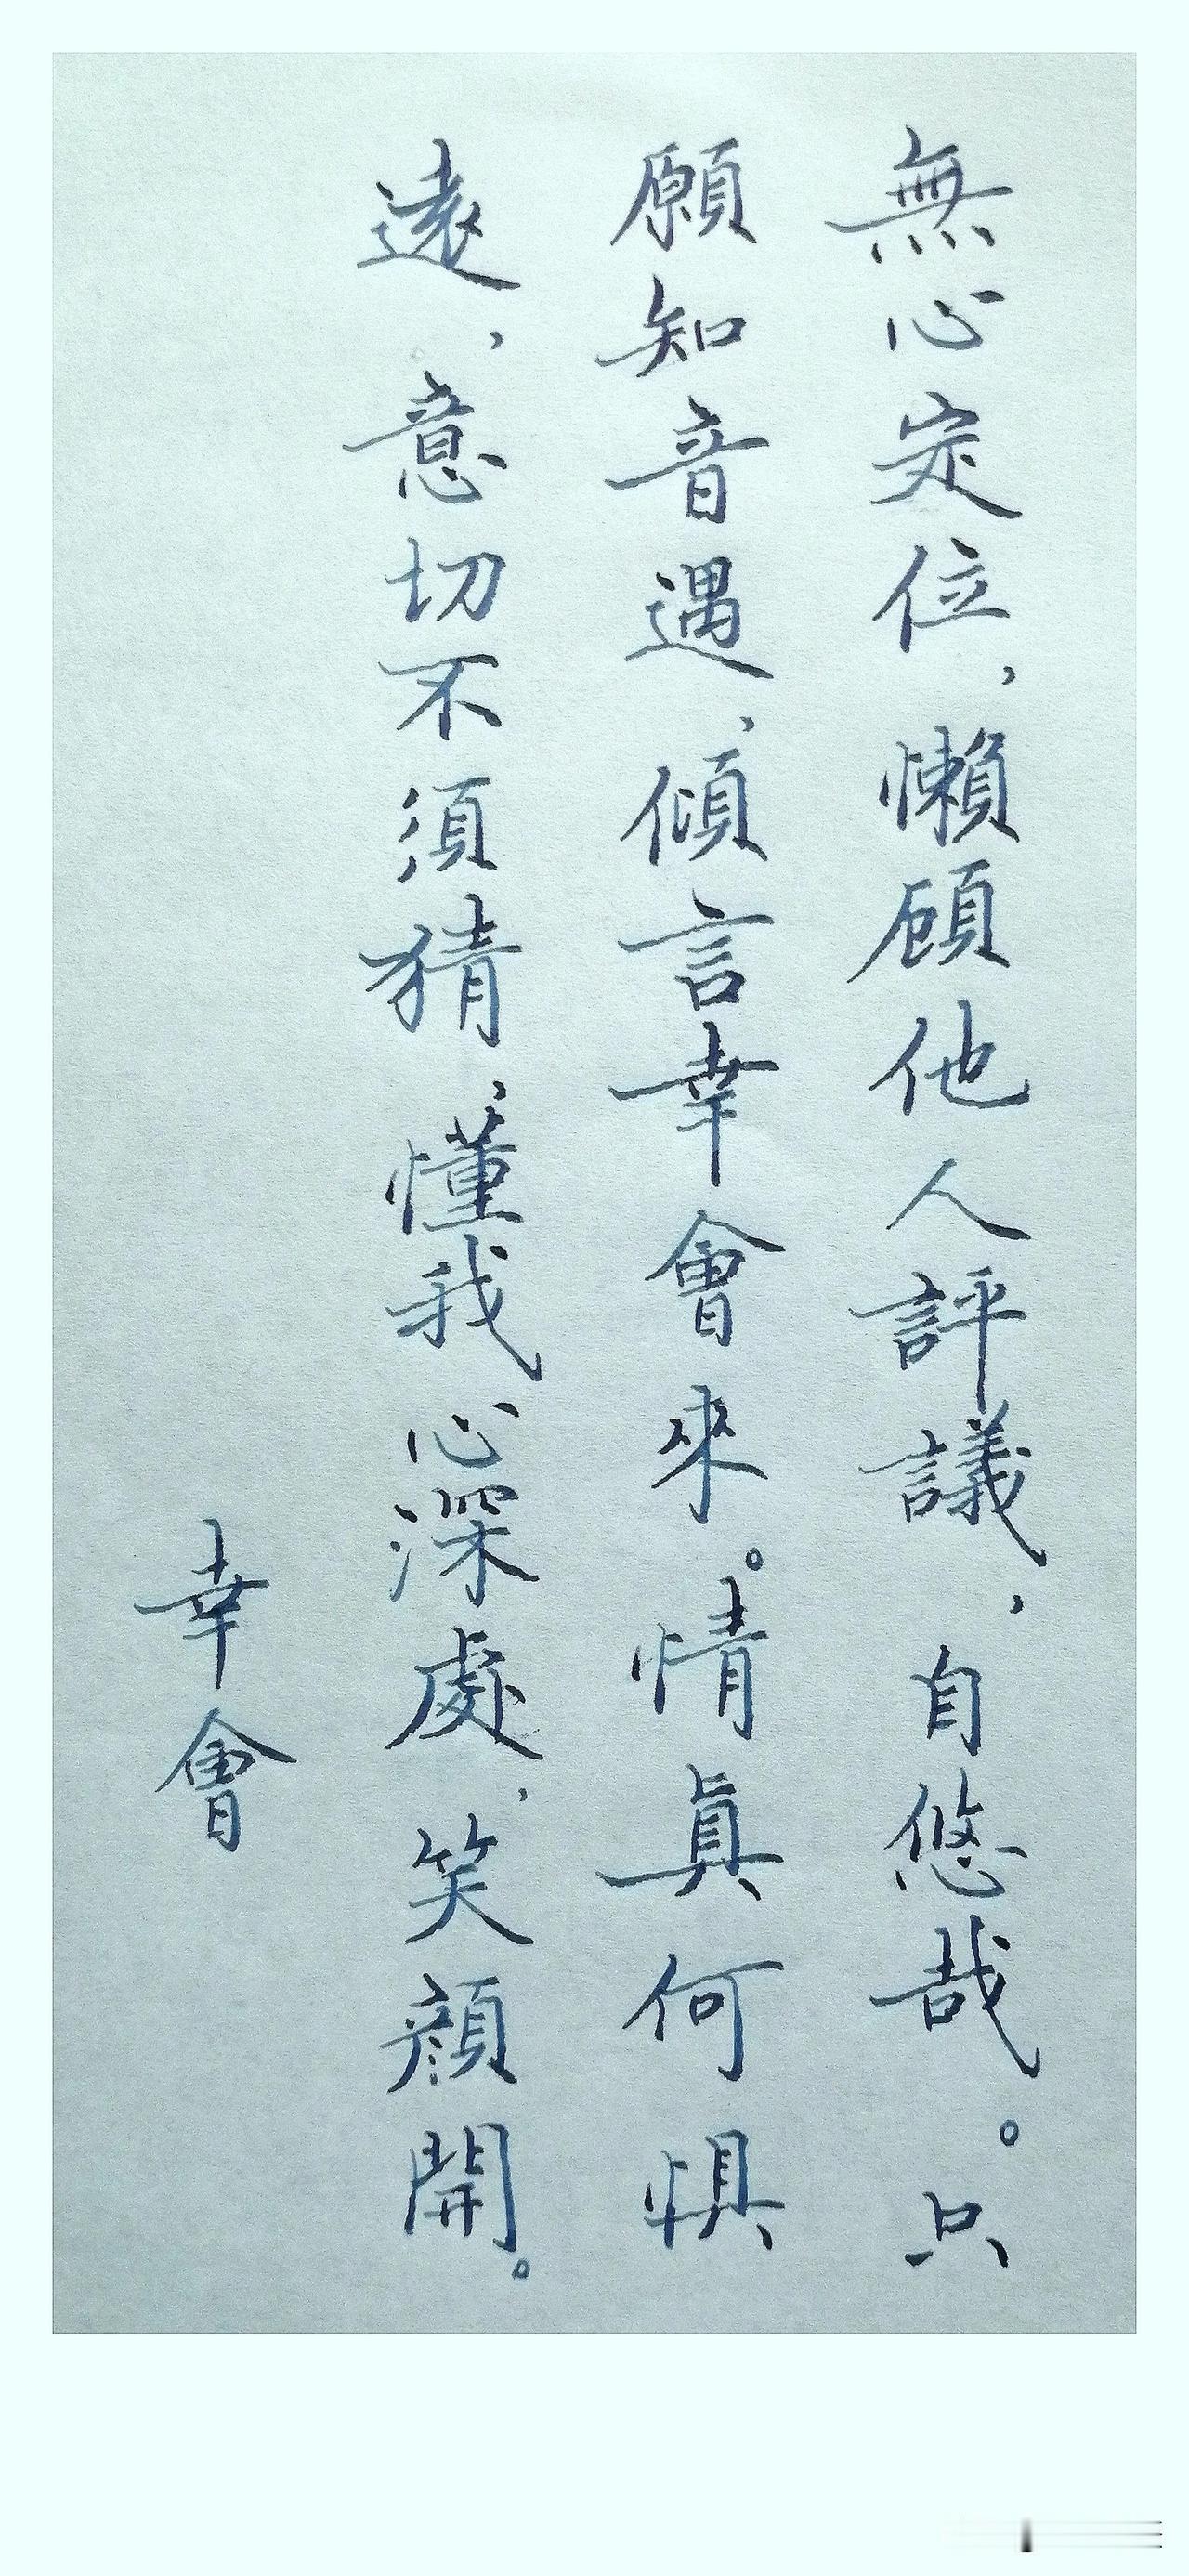 無心定位，懶顧他人評議，自悠哉。只
願知音遇，傾言幸會來。情真何懼
遠，意切不須猜，懂我心深處，笑顏開。
幸會